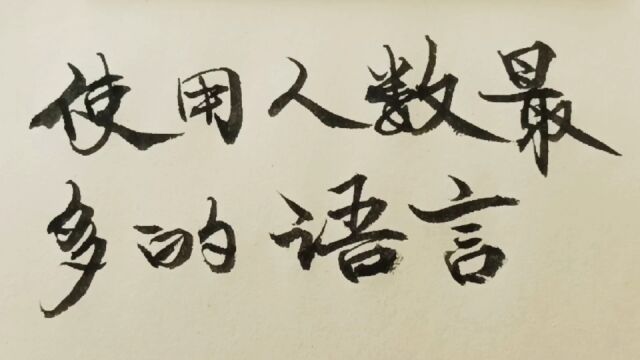 使用人数最
多的语言